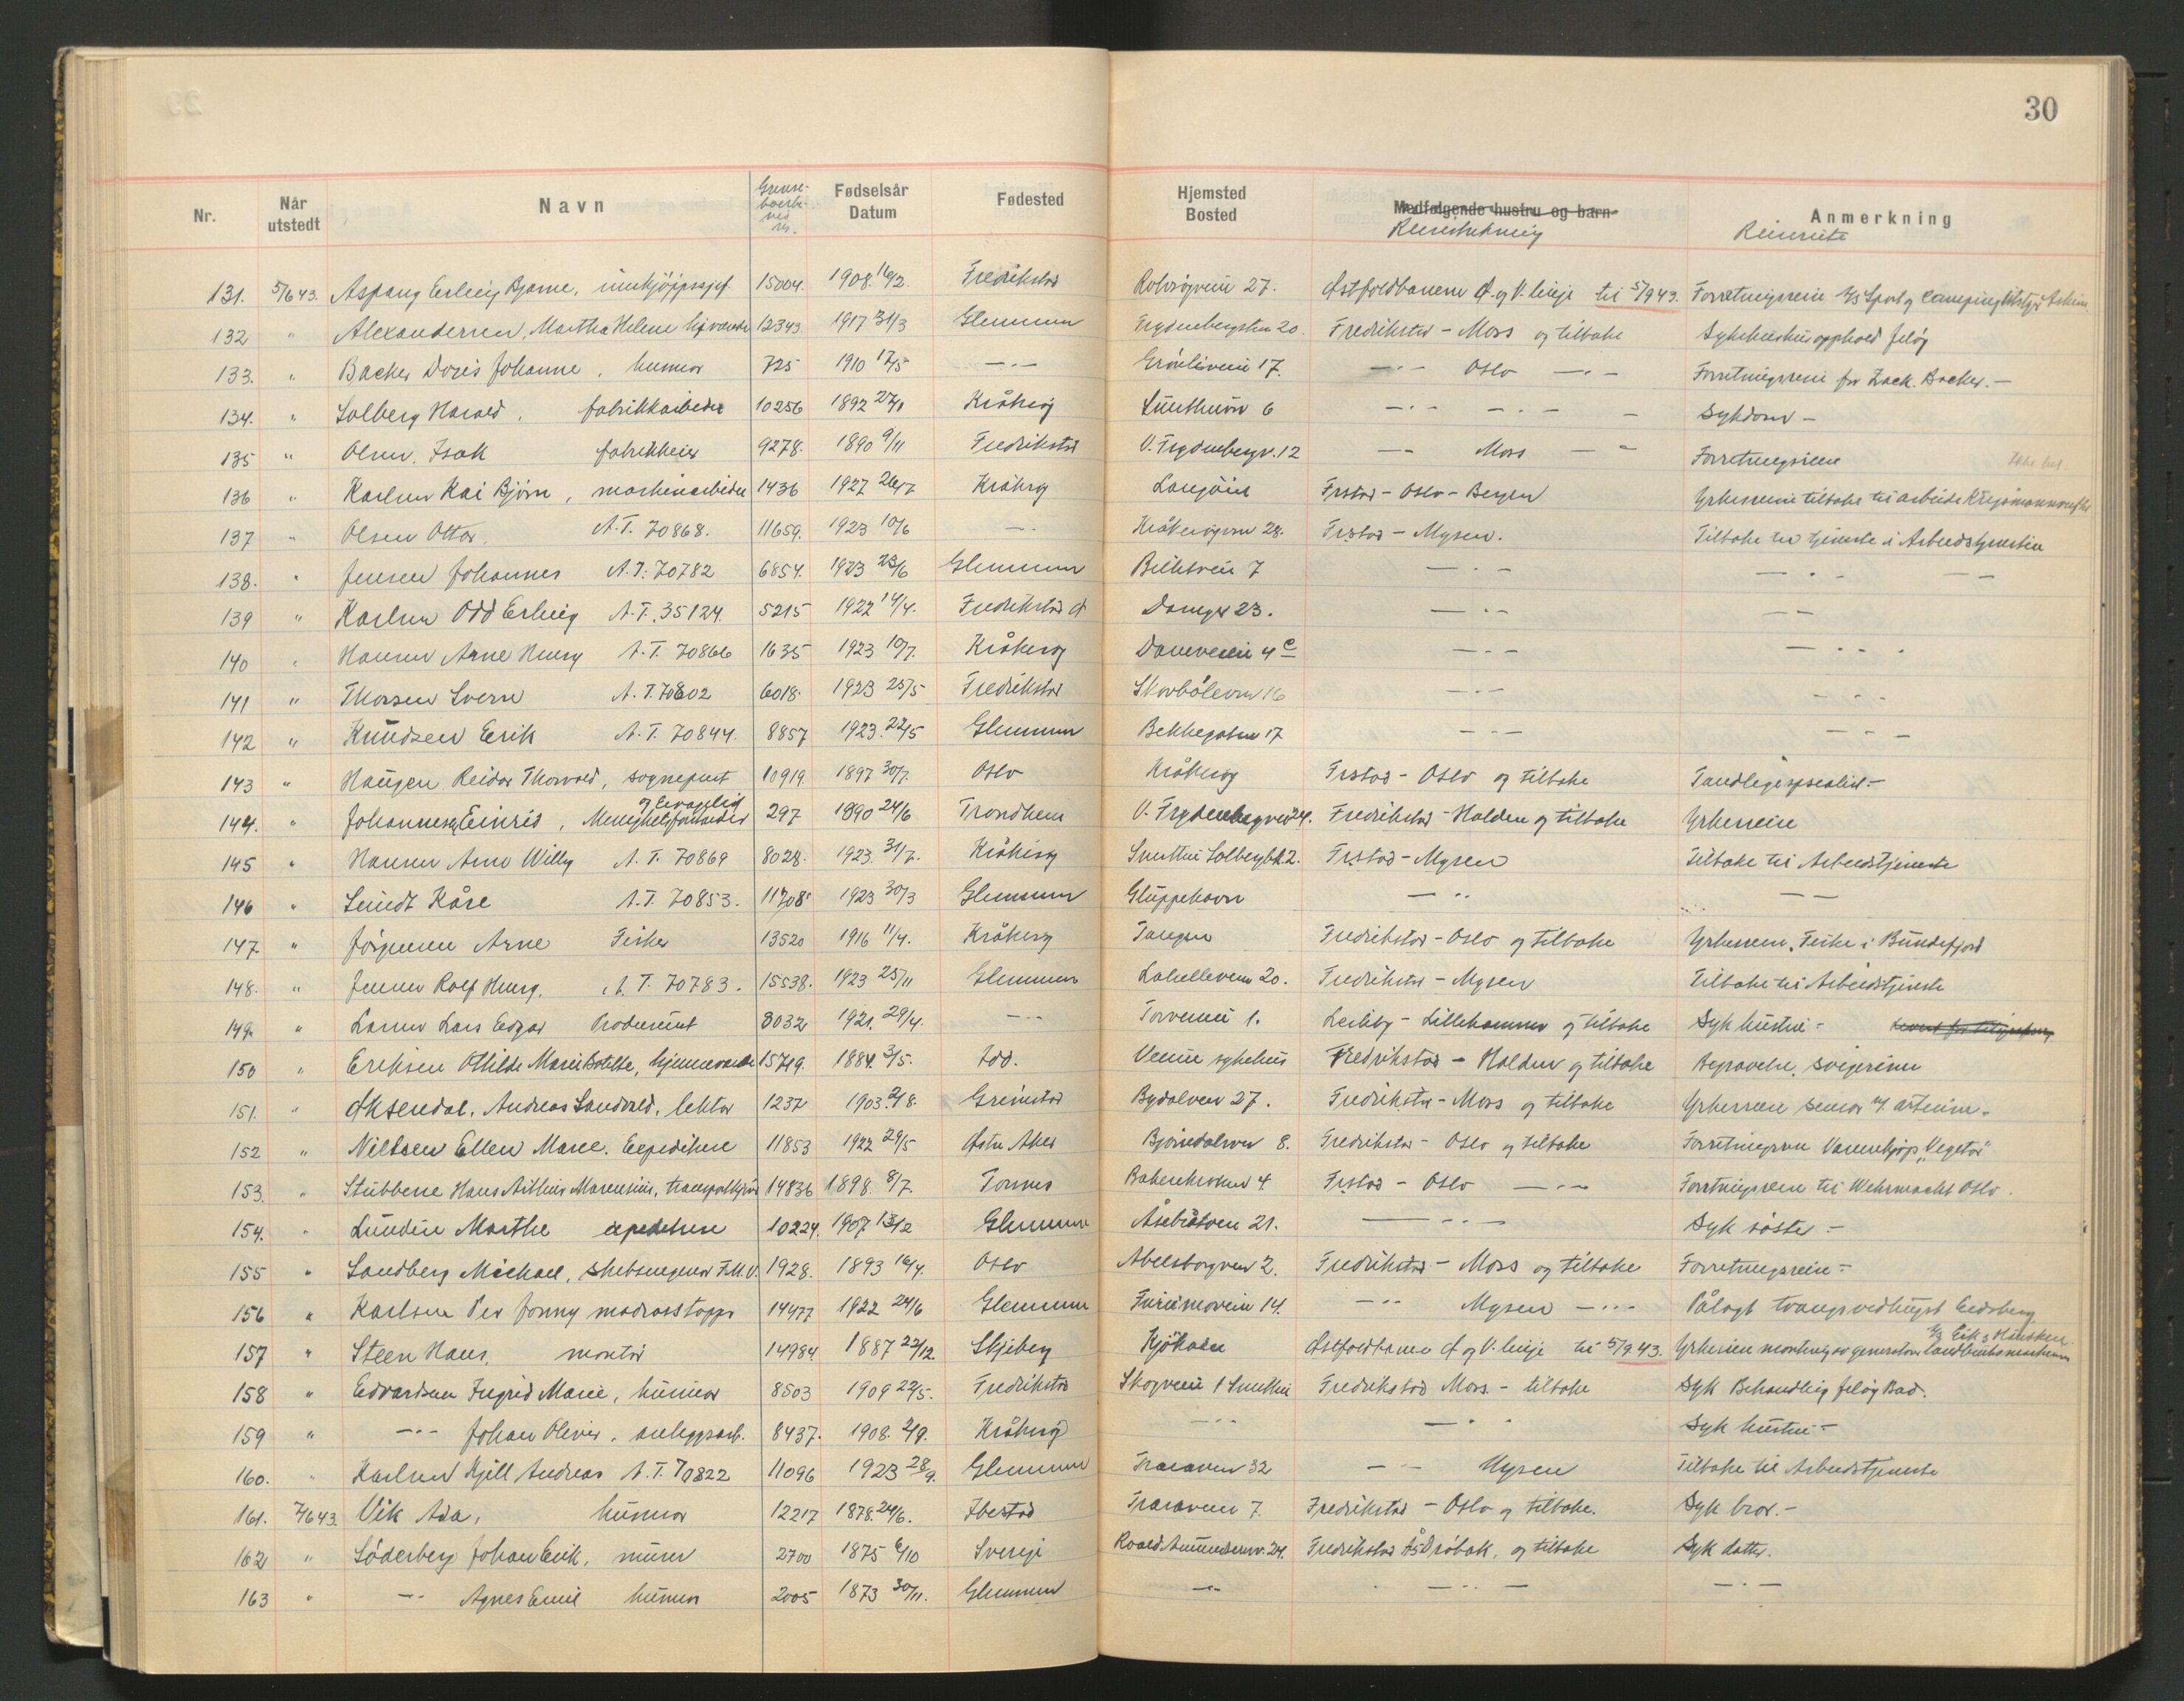 30
Nr. Når utstedt Navn Grense- boerbe- vis nr. Fødselsår Datum Fødested Hjemsted Bosted Medfølgende hustru og barn Reisestrekning Anmerkning Reiserute
131. 5/6 43. Aspang Erling Bjarne, innkjøpssjef 15004. 1908. 16/2. Fredrikstad Rolvsøyveien 27. Østfoldbanen Ø. og V. linje til 5/9 43. Forretningsreise A/S Sport og Campingutstyr Askim
132 " Alexandersen, Martha Helene 12343 1917 31/3 Glemmen Frydenbergstn 20. Fredrikstad - Moss og tilbake Sykehusopphold Jeløy
133. " Backer Doris Johanne, husmor 725 1910 17/5 -"- Grønliveien 17. -"- Oslo -"- Forretningsreise for Zack. Backer. -
134. " Solberg Harald, fabrikkarbeider 10256 1892 27/1 Kråkerøy Smertnin 6 -"- -"- - Sykdom -
135 " Olsen, Isak fabrikkeier 9278. 1890 9/11 Fredrikstad V. Frydenbergv. 12 -"- Moss -"- Forretningsreise
136 " Karlsen Kai Bjørn, maskinarbeider 1436 1927 26/7 Kråkerøy Langøien Frstad - Oslo - Bergen Yrkesreise tilbake til arbeide Krigsmannengten
137 " Olsen Ottar, A.T. 70868. 11659. 1923 10/6 -"- Kråkerøyvn 28. Frstad - Mysen. Tilbake til tjeneste i Arbeidstjenesten
138. " Jensen Johannes A.T. 70782 6854. 1923 23/6 Glemmen Bilitveien 7 -"- -"- -
139 " Karlsen Odd Erling A.T. 35124. 5215 1922 14/4. Fredrikstad Ø Damgt 23. -"- - -
140 " Hansen Arne Henry A.T. 70866 1635 1923 10/7. Kråkerøy Damveien 4 c -"- -"-
141 " Thorsen Sverre A.T. 70802 6018. 1923 25/5 Fredrikstad Skovbøleveien 16 -"- -"-
142 " Knudsen Erik A.T. 70844. 8857 1923. 22/5 Glemmen Bekkegaten 17 -"- -"-
143 " Haugen Reidar Thorvald, sogneprest 10919. 1897 30/7. Oslo Kråkerøy Frstad - Oslo og tilbake Tandlegespesialist -
og Evangelist
144. " Johannesen Einrid, Menighetsforstander 297 1890 24/6 Trondheim V. Frydenbergvei 24. Fredrikstad - Halden og tilbake Yrkesreise
145 " Hansen Arne Willy A.T. 70869 8028. 1923. 31/7. Kråkerøy Smertnin Solbergbk. 2. Frstad - Mysen Tilbake til Arbeidstjeneste
146 " Lundt Kåre A.T. 70853. 11708. 1923 30/3 Glemmen Gluppehavn -"- - -
147. " Jørgensen Arne Fisker 13520 1916 11/4. Kråkerøy Tangen Fredrikstad - Oslo og tilbake Yrkesreise, Fiske i Bundefjord
148. " Jensen Rolf Henry, A.T. 70783. 15538. 1923 25/11 Glemmen Lahelleveien 20. Fredrikstad - Mysen Tilbake til Arbeidstjeneste
149. " Larsen Lars Edgar Produsent 8032 1921. 29/4. -"- Torveien 1. Leiliby - Lillehammer og tilbake Syk hustru -
150 " Eriksen Othilde Marie Botilde, hjemmeværende 15719. 1884. 3/5. Idd. Veum sykehus Fredrikstad - Halden og tilbake Begravelse, svigerinne
151. " Øksendal, Andreas Sandvold, lektor 1237 1903. 2/8. Grimstad Bydalveien 27. Fredrikstad - Moss og tilbake Yrkesreise sensor v/ artium.
152 " Nielsen Ellen Marie. Expeditrise 11853 1922 29/5 Østre Aker Bjørndalveien 8. Fredrikstad - Oslo og tilbake Forretningsreise Vareinnkjøp "Vegetar"
153. " Stubberne Hans Arthur Marensius, 14836 1898. 8/7. Torsnes Bakerekroken 4. Frstad - Oslo -"- Forretningsreise til Wehrmacht Oslo.
154. " Lundin Marthe expeditrise 10224. 1907 13/12 Glemmen Åsebråtveien 21. -"- Syk søster -
155 " Sandberg Michael, skibsingeniør F.M.V. 1928. 1893 16/4. Oslo Abelsborgveien 2. Fredrikstad - Moss og tilbake Forretningsreise -
156 " Karlsen Per Jonny madrasstopper 14477 1922 24/6 Glemmen Furumoveien 14. -"- Mysen -"- Pålagt tvangsvedhugst Eidsberg
157 " Steen Hans, montør 14984 1887 22/12. Skjeberg Kjøkøen Østfoldbanen Ø og V. linje til 5/9 43. Yrkesreise montering av generatorer A/S Eik & Hausken Landbruksmaskiner
158 " Edvardsen Ingrid Marie, husmor 8503 1909 22/5. Fredrikstad Skogveien 1 Smertnin Fredrikstad Moss - tilbake Syk Behandling Jeløy Bad.
159 " -"- Johan Oliver, anleggsarb. 8437. 1908. 2/9. Kråkerøy -"- -"- Syk hustru -
160. " Karlsen Kjell Andreas A.T. 70822 11096 1923 28/9. Glemmen Traraveien 32 -"- Mysen Tilbake til Arbeidstjeneste
161. 7/6 43. Vik Ada, husmor 12217 1878. 24/6. Ibestad Traraveien 7. Fredrikstad - Oslo og tilbake. Syk bror. -
162 " Søderberg Johan Erik, murer 2700 1875 6/10 Sverige Roald Amundsensv. 24. Fredrikstad Ås Drøbak, og tilbake Syk datter.
163 " -"- Agnes Emilie husmor 2005 1873 30/11. Glemmen -"- -"- -"-